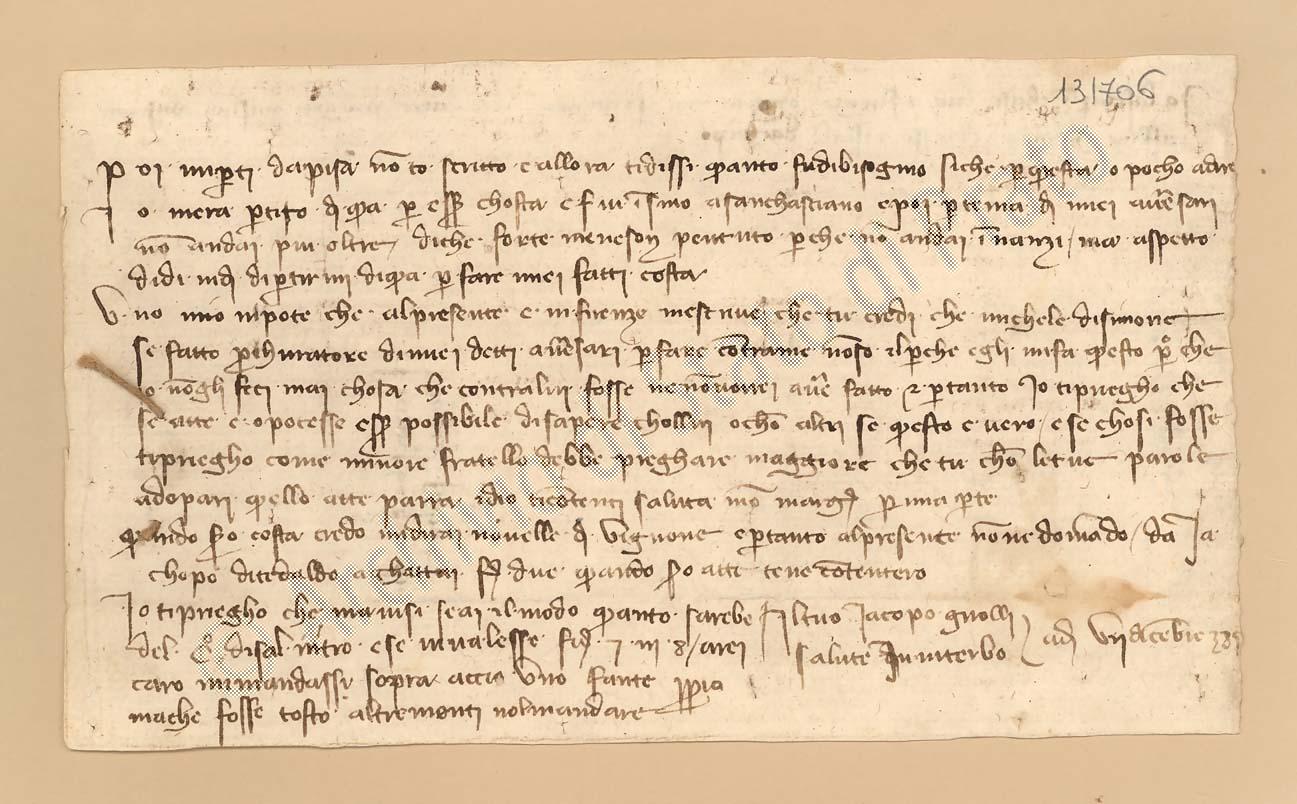 131706
Poi mi parti da pisa no to scritto e allora ti dissi quanto fu di bisogno siche per questa o pocho a dare
Io mera partito di qua per esser chosta e fui ismo a sanchasciano e poi per tema di miei aversari
no andai piu oltre di che forte mene son pentuto perche no andai inanzi ma aspetto
di di in di partirmi di qua per fare miei fatti costa
Uno mio nipote che al presente e in firenze mescrive che tu credi che michele di simone
se fatto prochuratore di miei detti aversari per fare contra me no so il perche egli mi fa questo pero che
io nogli feci mai chosa che contra lui fosse ne no vorrei aver fatto e per tanto Io ti priegho che
se atte e o potesse esser possibile di sapere chollui o cho altri se questo e vero e se chosi fosse
ti priegho come minore fratello debbe preghare maggiore che tu cho le tue parole
adopari quello atte parra idio ti contenti saluta mo margi per mia parte
quando saro costa credo mi dirai novelle di Vignone e per tanto al presente no ne domando da Ia
chopo di tedaldo achattai fj due quando saro atte tene contentero
Io ti priegho che mavisi seai il modo quanto sarebe
del di sal nitro e se vi valesse
caro mi mandassi sopra accio uno fante
ma che fosse tosto altrementi nol mandare
Il tuo Jacopo
salute In viterbo
Archivio di Stato di Prato